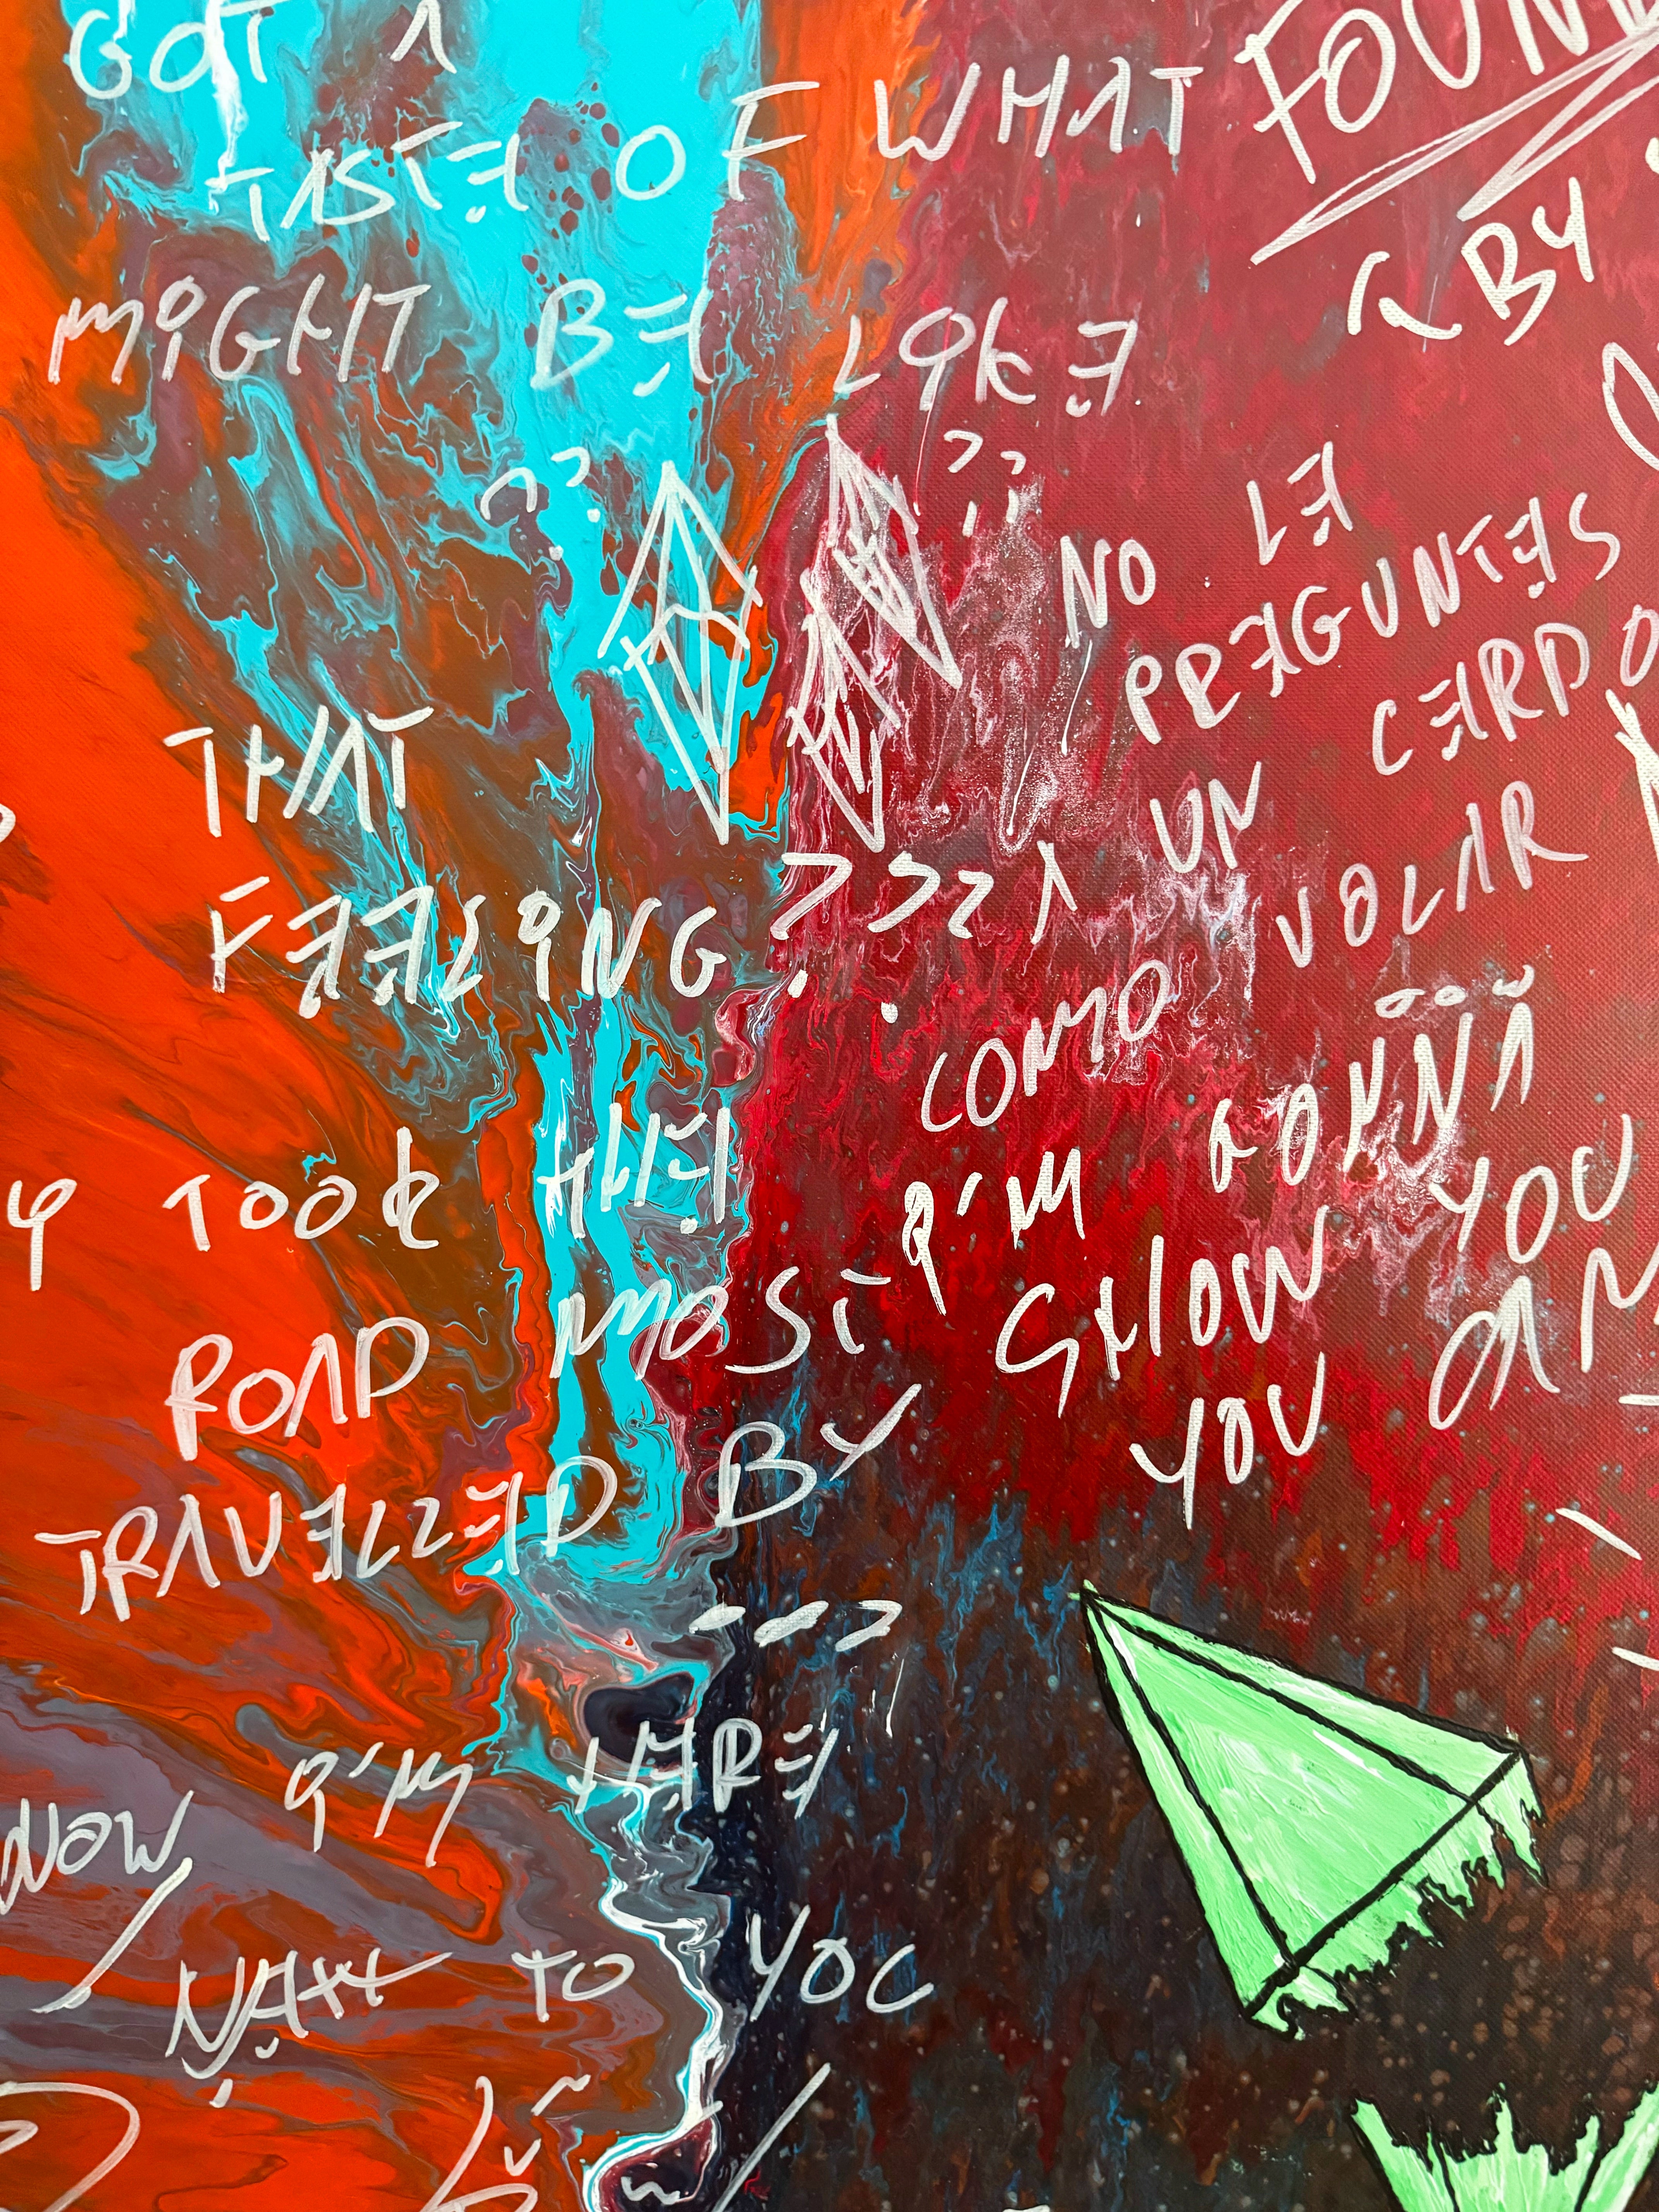 GOT A
TASTE OF WHAT
MIGHT BE LIKE
??
??
THAT
FEELING ???
TOOK THE
ROAD MOST
TRAVELLED BY
NOW I'M HERE
NEXT TO YOU
BY
NO LE
PREGUNTES
A UN CERDO
COMO VOLAR
I'M GONNA
SHOW YOU
YOU